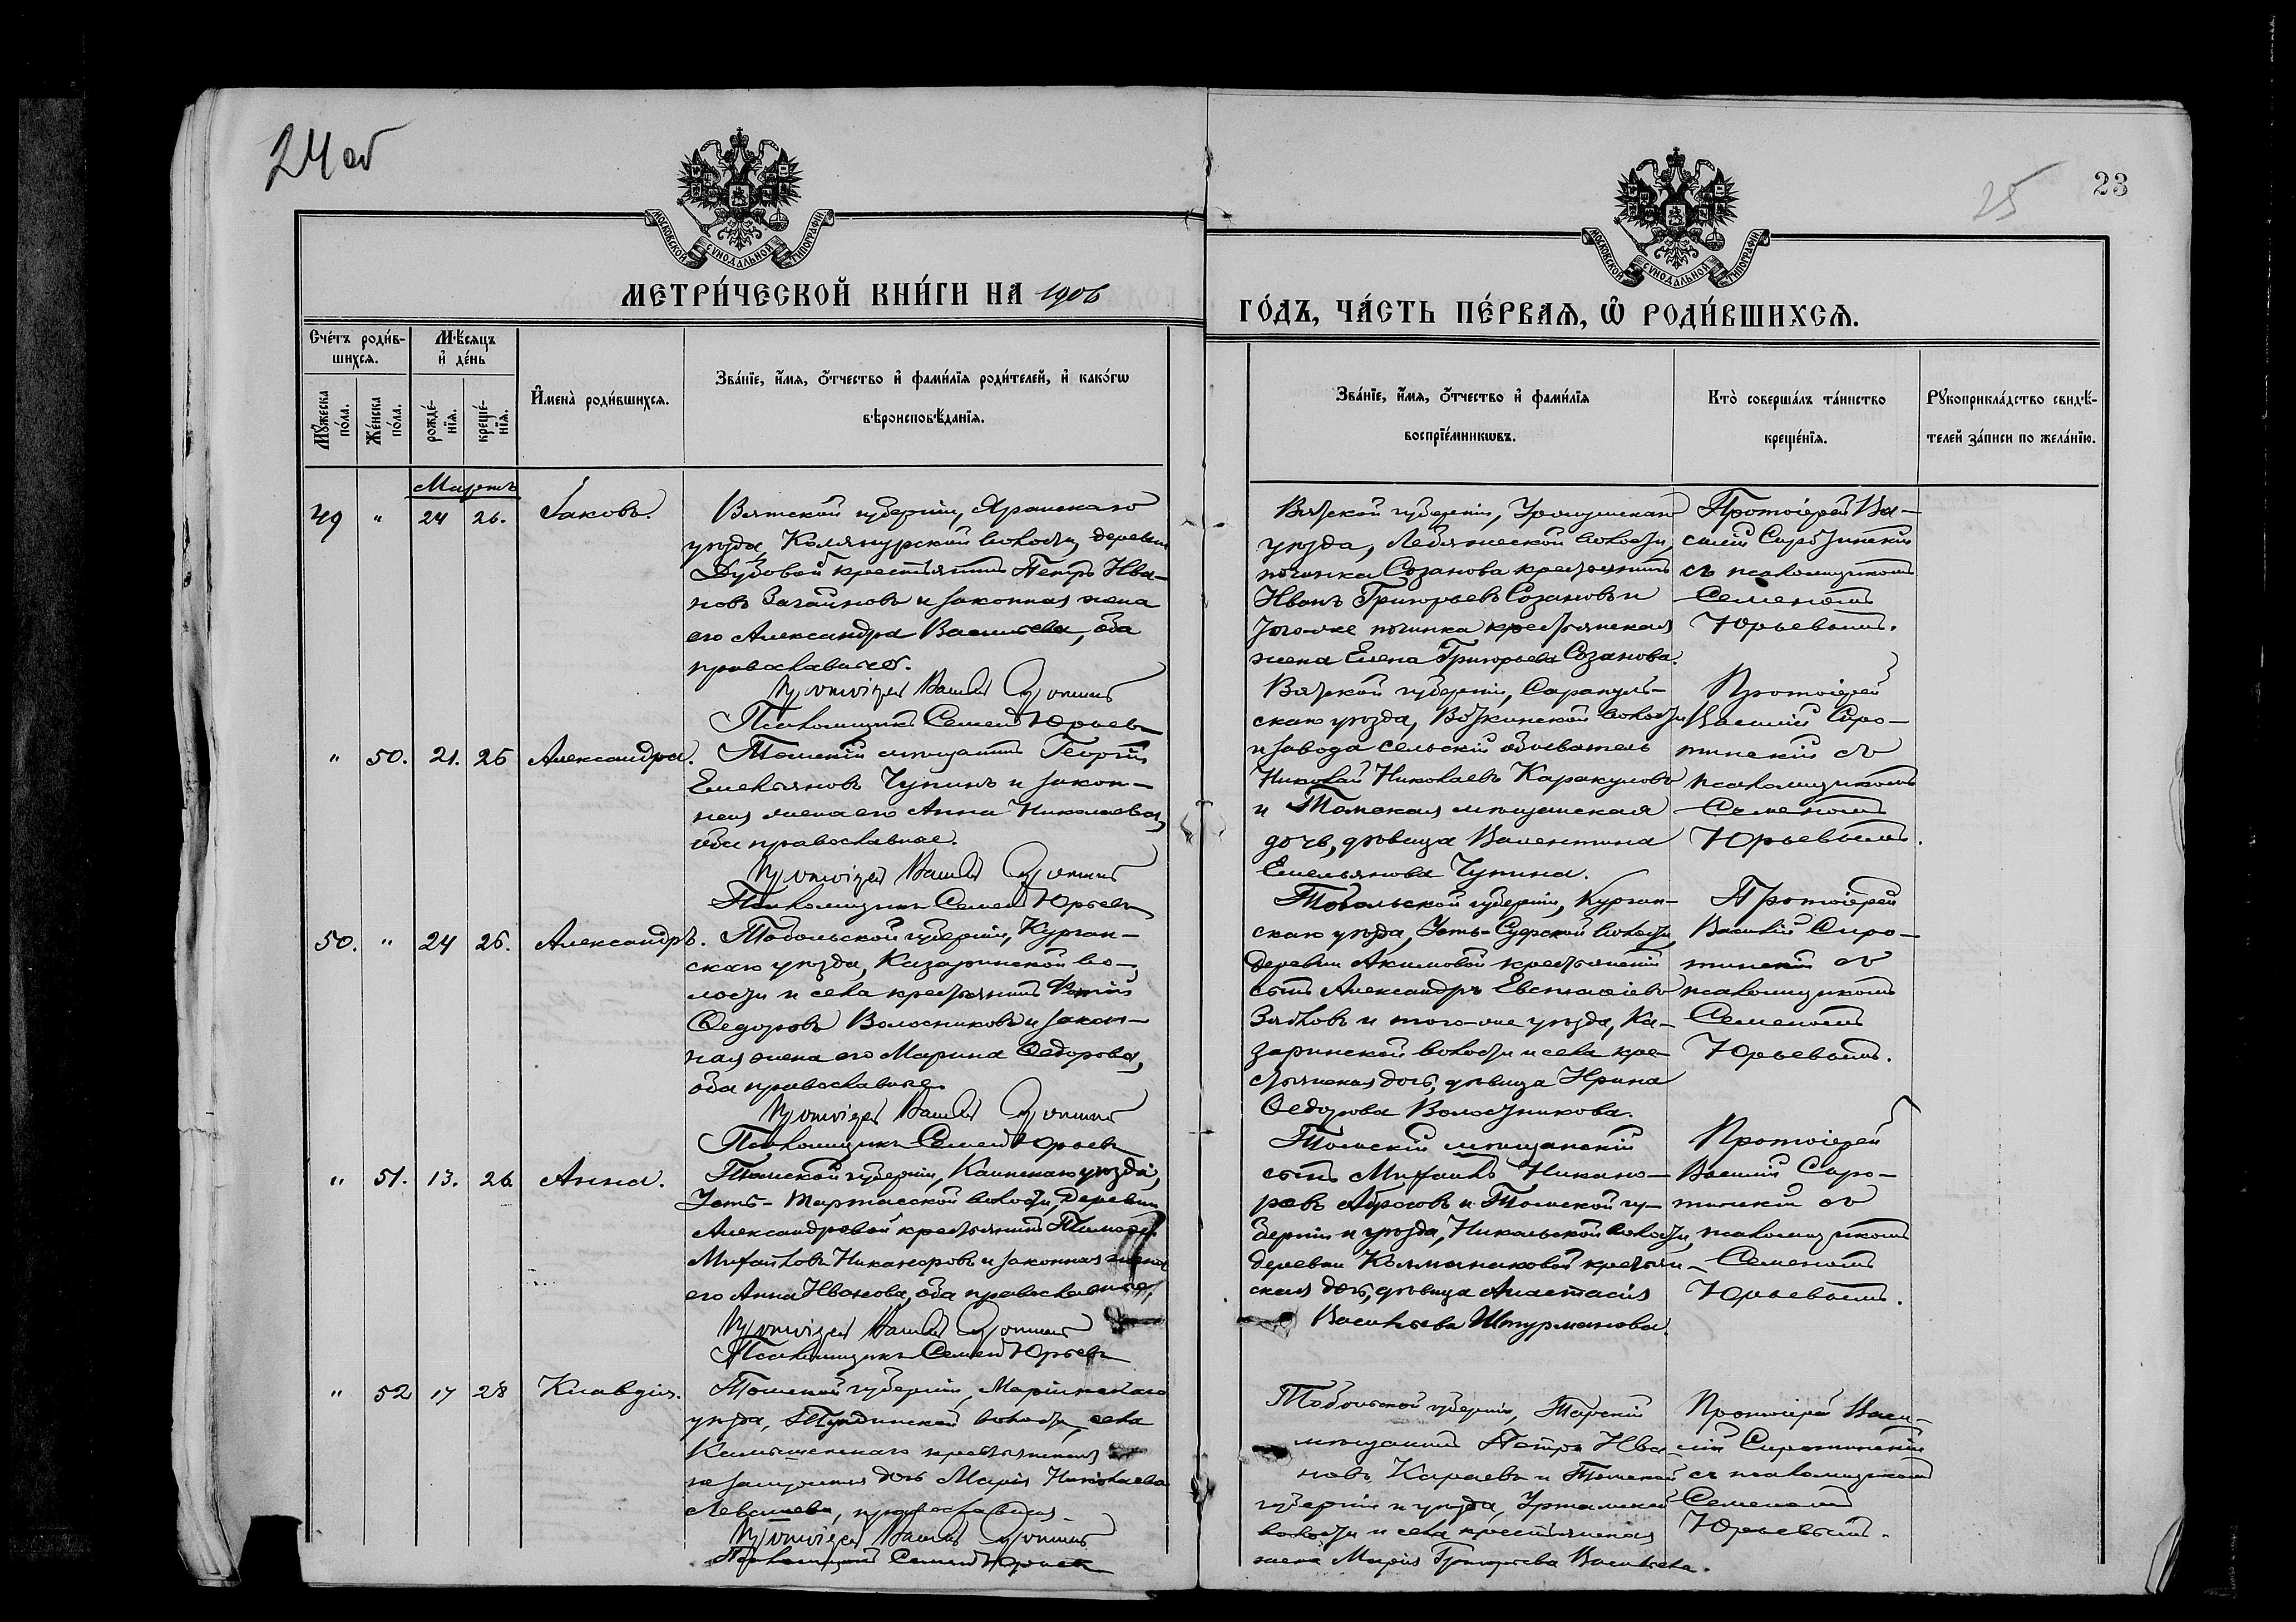 24 об
25
23
МОСКОВСКОЙ СѴНОДАЛЬНОЙ ТИПОГРАФІИ
МОСКОВСКОЙ СѴНОДАЛЬНОЙ ТИПОГРАФІИ
МЕТРИ́ЧЕСКОЙ КНИ́ГИ НА 1906
ГО́ДЪ, ЧА́СТЬ ПЕ́РВАѦ, Ѡ҆ РОДИ́ВШИХСѦ.
Сче́тъ роди́в-
шихсѧ.
Мѣ́сѧцъ
и҆ де́нь
Мꙋ́жеска по́ла.
Же́нска по́ла.
рожде́-
нїѧ.
креще́-
нїѧ.
И҆мена̀ роди́вшихсѧ.
Зва́нїе, и҆́мѧ, ѻ҆́тчество и҆ фами́лїѧ роди́телей, и҆ како́гѡ
вѣроисповѣ́данїѧ.
Зва́нїе, и҆́мѧ, ѻ҆́тчество и҆ фами́лїѧ
воспрїе́мникѡвъ.
Кто̀ соверша́лъ та́инство
креще́нїѧ.
Рꙋкоприкла́дство свидѣ́-
телей за́писи по жела́нїю.
Мартъ
49 " 24 26. Іаковъ.
Вятской губерніи, Яранскаго
уѣзда, Колянурской волости, деревни
Дубовой крестьянинъ Петръ Ива-
новъ Загайновъ и законная жена
его Александра Васильева, оба
православные.
Протоіерей Василій Сиротинскій
Псаломщикъ Семенъ Юрьевъ
Вятской губерніи, Уржумскаго
уѣзда, Лебяжской волости,
починка Созанова крестьянинъ
Иванъ Григорьевъ Созановъ и
того-же починка крестьянская
жена Елена Григорьева Созанова.
Протоіерей Ва-
силій Сиротинскій
съ псаломщикомъ
Семеномъ
Юрьевымъ.
" 50. 21. 26 Александра.
Томскій мѣщанинъ Георгій
Емельяновъ Чупинъ и закон-
ная жена его Анна Николаева,
оба православные.
Протоіерей Василій Сиротинскій
Псаломщикъ Семенъ Юрьевъ
Вятской губерніи, Сарапуль-
скаго уѣзда, Воткинской волости
и завода сельскій обыватель
Николай Николаевъ Каракуловъ
и Томская мѣщанская
дочь, дѣвица Валентина
Емельянова Чупина.
Протоіерей
Василій Сиро-
тинскій съ
псаломщикомъ
Семеномъ
Юрьевымъ.
50. " 24 26. Александръ.
Тобольской губерніи, Курган-
скаго уѣзда, Казаринской во-
лости и села крестьянинъ
Ѳедоровъ Волосниковъ и закон-
ная жена его Марина Ѳедорова,
оба православные.
Протоіерей Василій Сиротинскій
Псаломщикъ Семенъ Юрьевъ
Тобольской губерніи, Курган-
скаго уѣзда, Усть-Суерской волости,
деревни Акимовой крестьянскій
сынъ Александръ Евстафіевъ
Зябловъ и того-же уѣзда, Ка-
заринской волости и села кре-
стьянская дочь, дѣвица Ирина
Ѳедорова Волосникова.
Протоіерей
Василій Сиро-
тинскій съ
псаломщикомъ
Семеномъ
Юрьевымъ.
" 51. 13. 26 Анна.
Томской губерніи, Каинскаго уѣзда,
Усть-Тартасской волости, деревни
Александровой крестьянинъ Тимоѳей
Михайловъ Никаноровъ и законная жена
его Анна Иванова, оба православные,
Протоіерей Василій Сиротинскій
Псаломщикъ Семенъ Юрьевъ
Томскій мѣщанскій
сынъ Михаилъ Никано-
ровъ Абросовъ и Томской гу-
берніи и уѣзда, Никольской волости,
деревни крестьян-
ская дочь, дѣвица Анастасія
Васильева Штурманова.
Протоіерей
Василій Сиро-
тинскій съ
псаломщикомъ
Семеномъ
Юрьевымъ.
" 52 17 28 Клавдія.
Томской губерніи, Маріинскаго
уѣзда, Тундинской волости, села
Камышенскаго крестьянская
незамужняя дочь Марія Николаева
Левашева, православная.
Протоіерей Василій Сиротинскій
Псаломщикъ Семенъ Юрьевъ
Тобольской губерніи, Тарскій
мѣщанинъ Петръ Ива-
новъ Караевъ и Томской
губерніи и уѣзда, Уртамской
волости и села крестьянская
жена Марія Григорьева Васильева.
Протоіерей Васи-
лій Сиротинскій
съ псаломщикомъ
Семеномъ
Юрьевымъ.